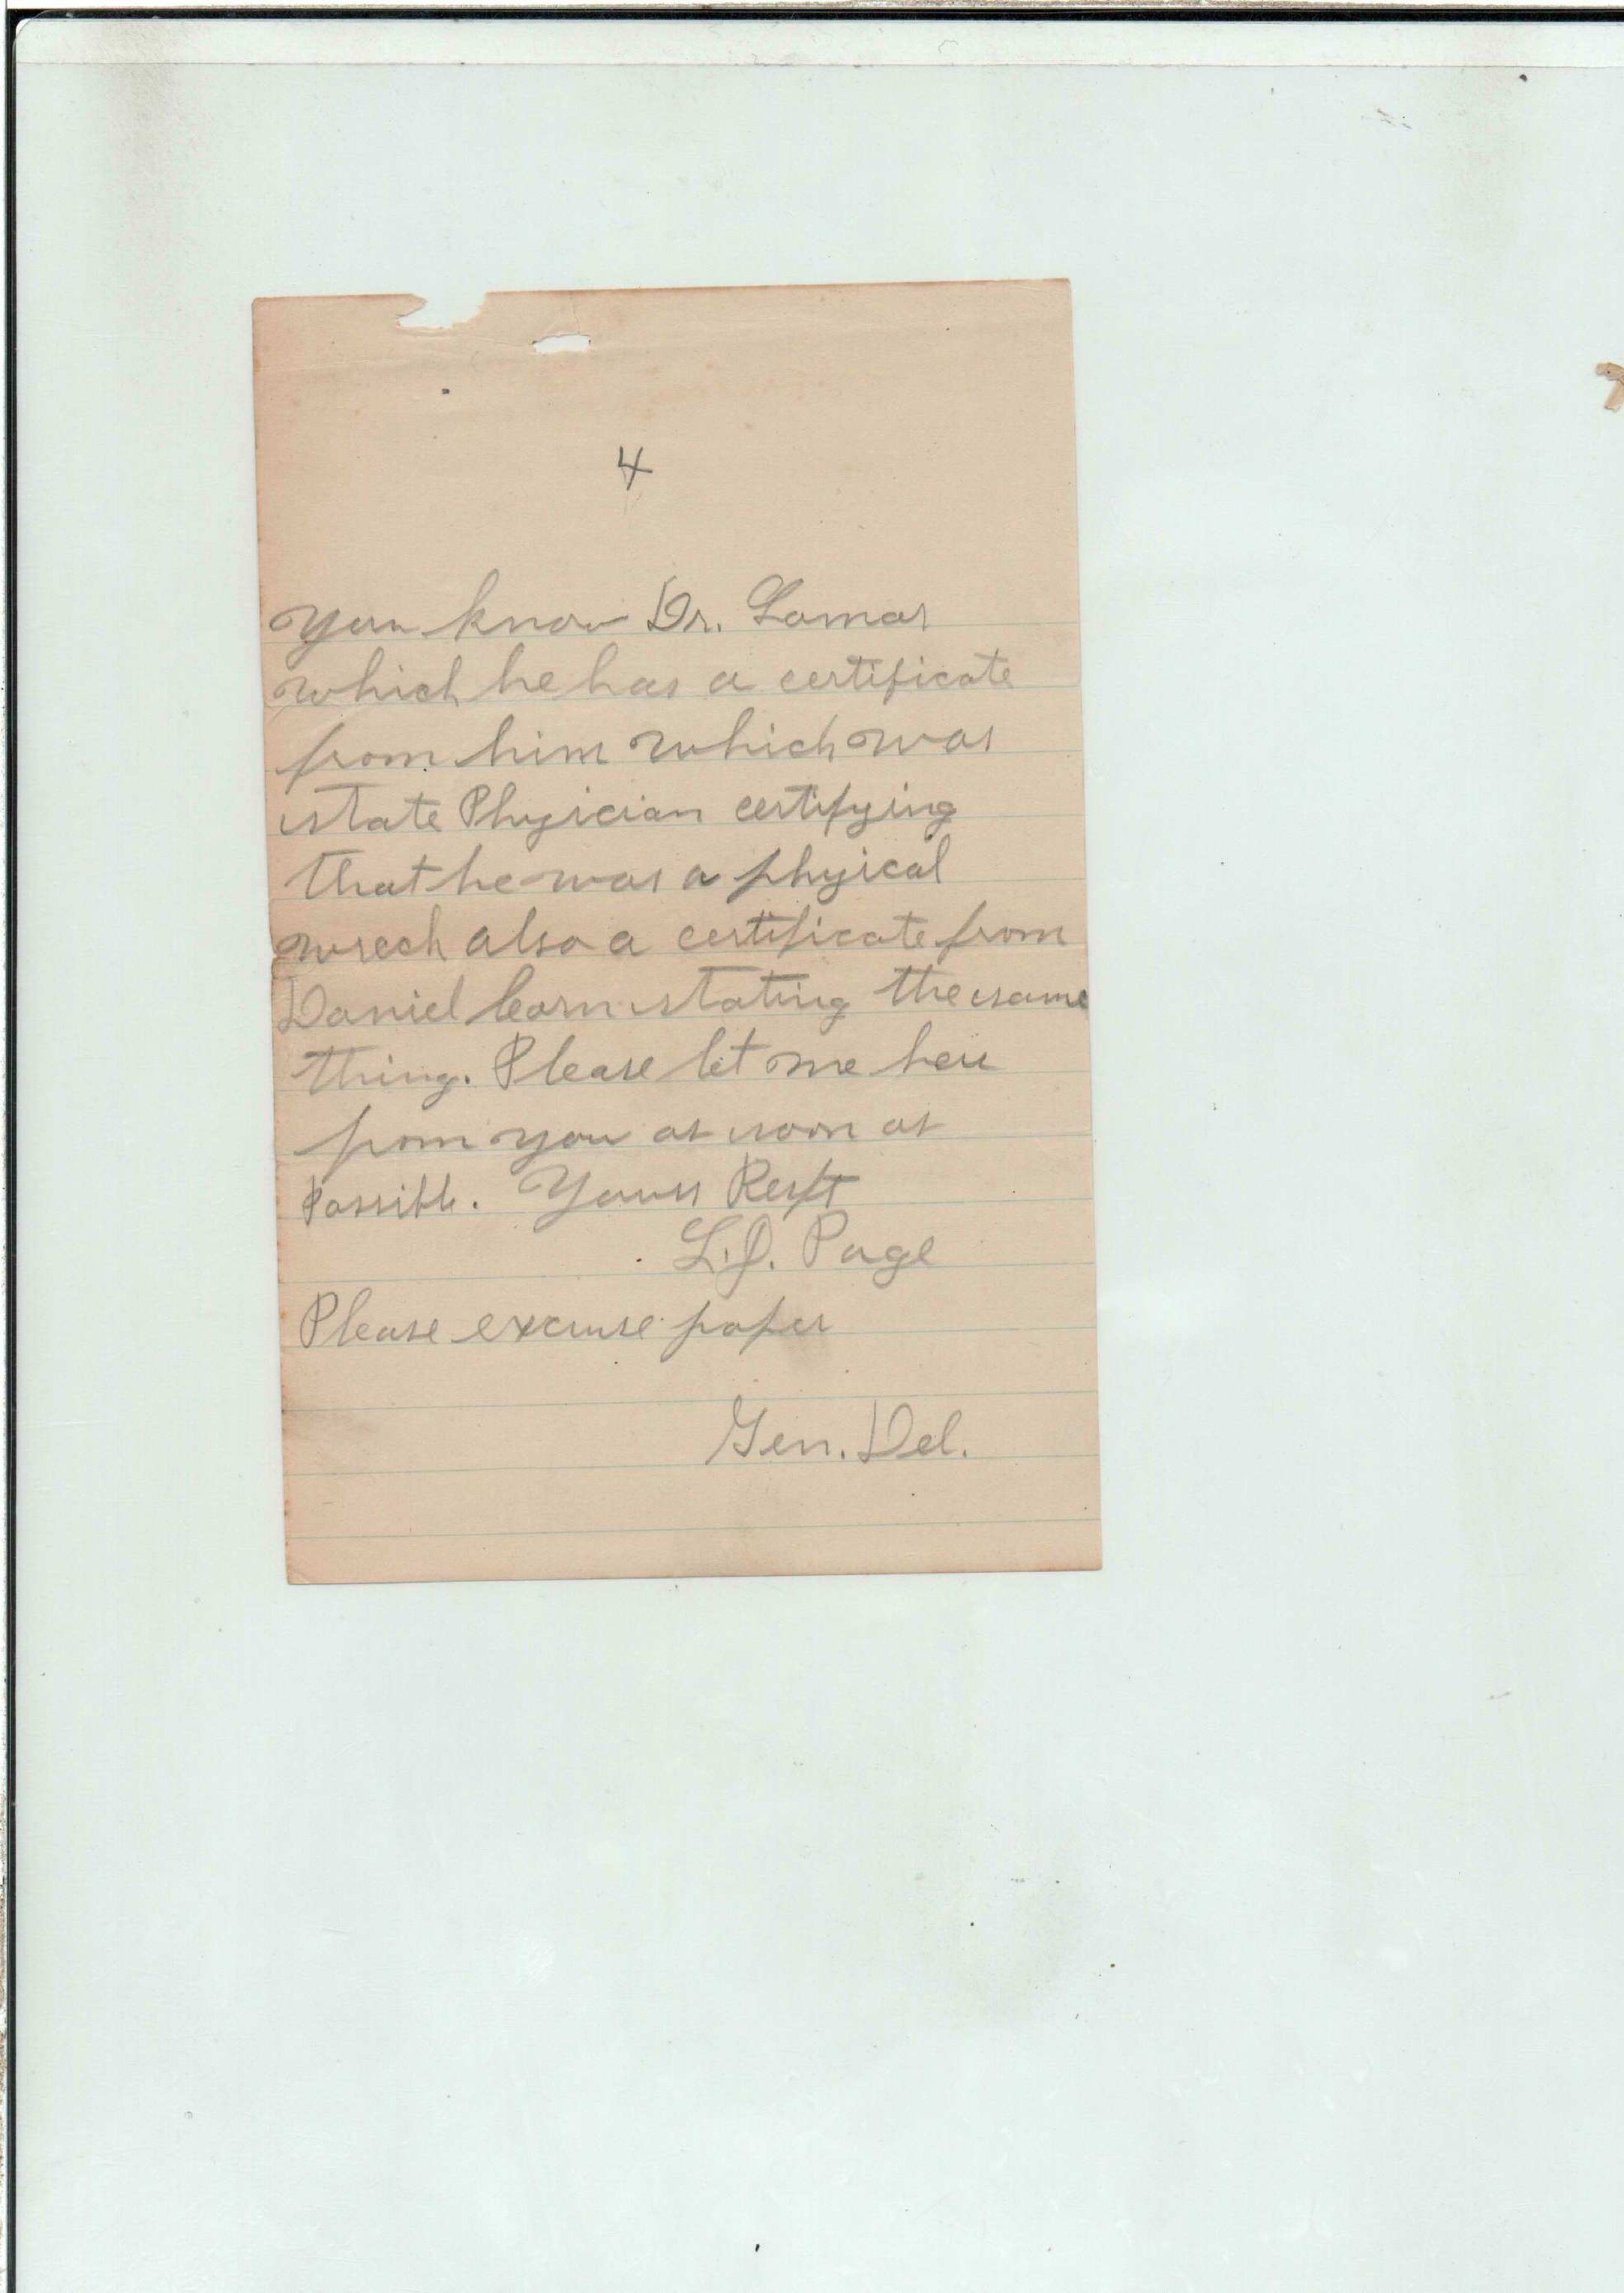 4
you know Dr. Lamar
which he has a certificate
from him which was
state Phyician certifying
that he was a phyical
wrech also a certificate from
Daniel stating the same
thing. Please let me here
from you as soon as
Possible. Yours Resft
L.J. Page
Please excuse paper
Gen. Del.